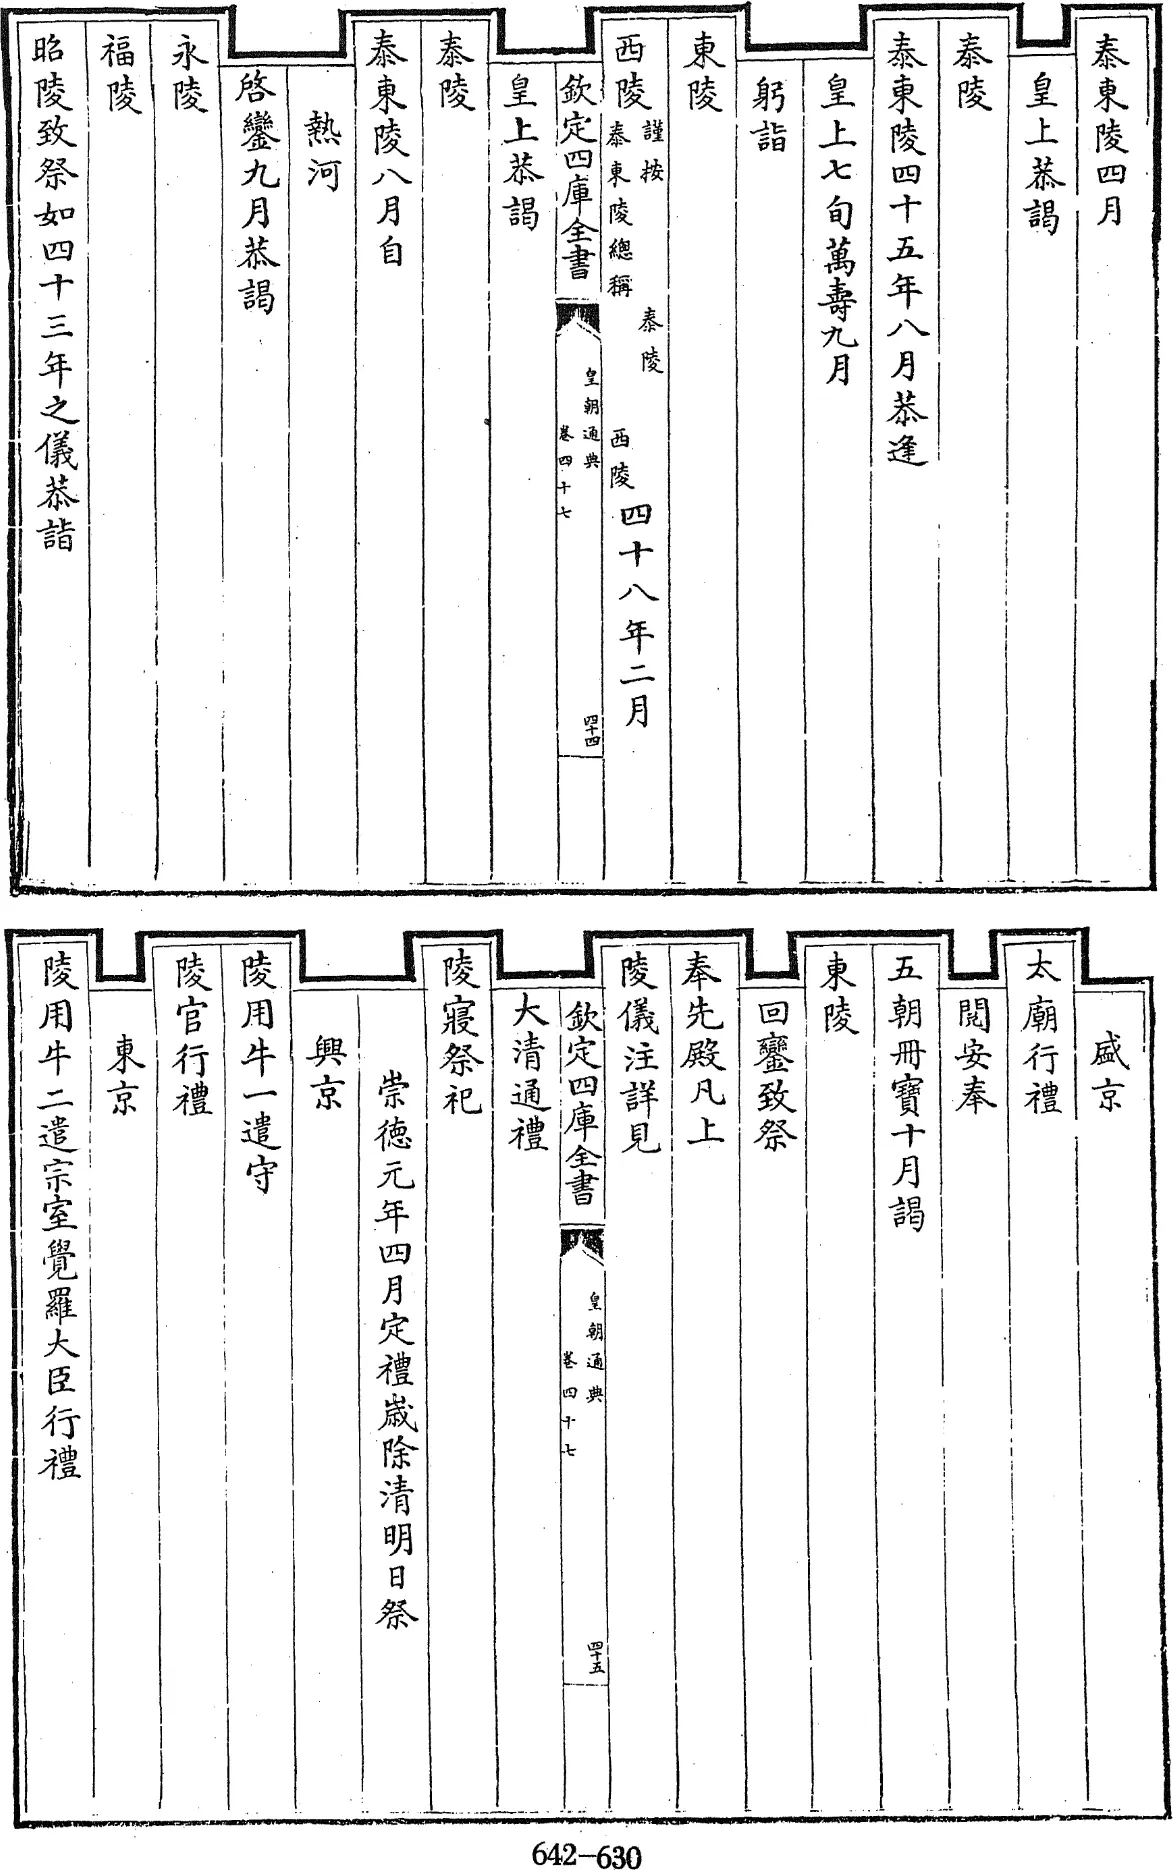 泰東陵四月
皇上恭謁
泰陵
泰東陵四十五年八月恭逢
皇上七旬萬壽九月
躬詣
東陵
西陵謹按泰陵泰東陵總稱西陵四十八年二月
欽定四庫全書
皇朝通典
卷四十七
四十四
皇上恭謁
泰陵
泰東陵八月自
熱河
啓鑾九月恭謁
永陵
福陵
昭陵致祭如四十三年之儀恭詣
盛京
太廟行禮
閱安奉
五朝冊寶十月謁
東陵
回鑾致祭
奉先殿凡上
陵儀注詳見
欽定四庫全書
皇朝通典
卷四十七
四十五
大清通禮
陵寢祭祀
崇德元年四月定禮歲除清明日祭
興京
陵用牛一遣守
陵官行禮
東京
陵用牛二遣宗室覺羅大臣行禮
642-630